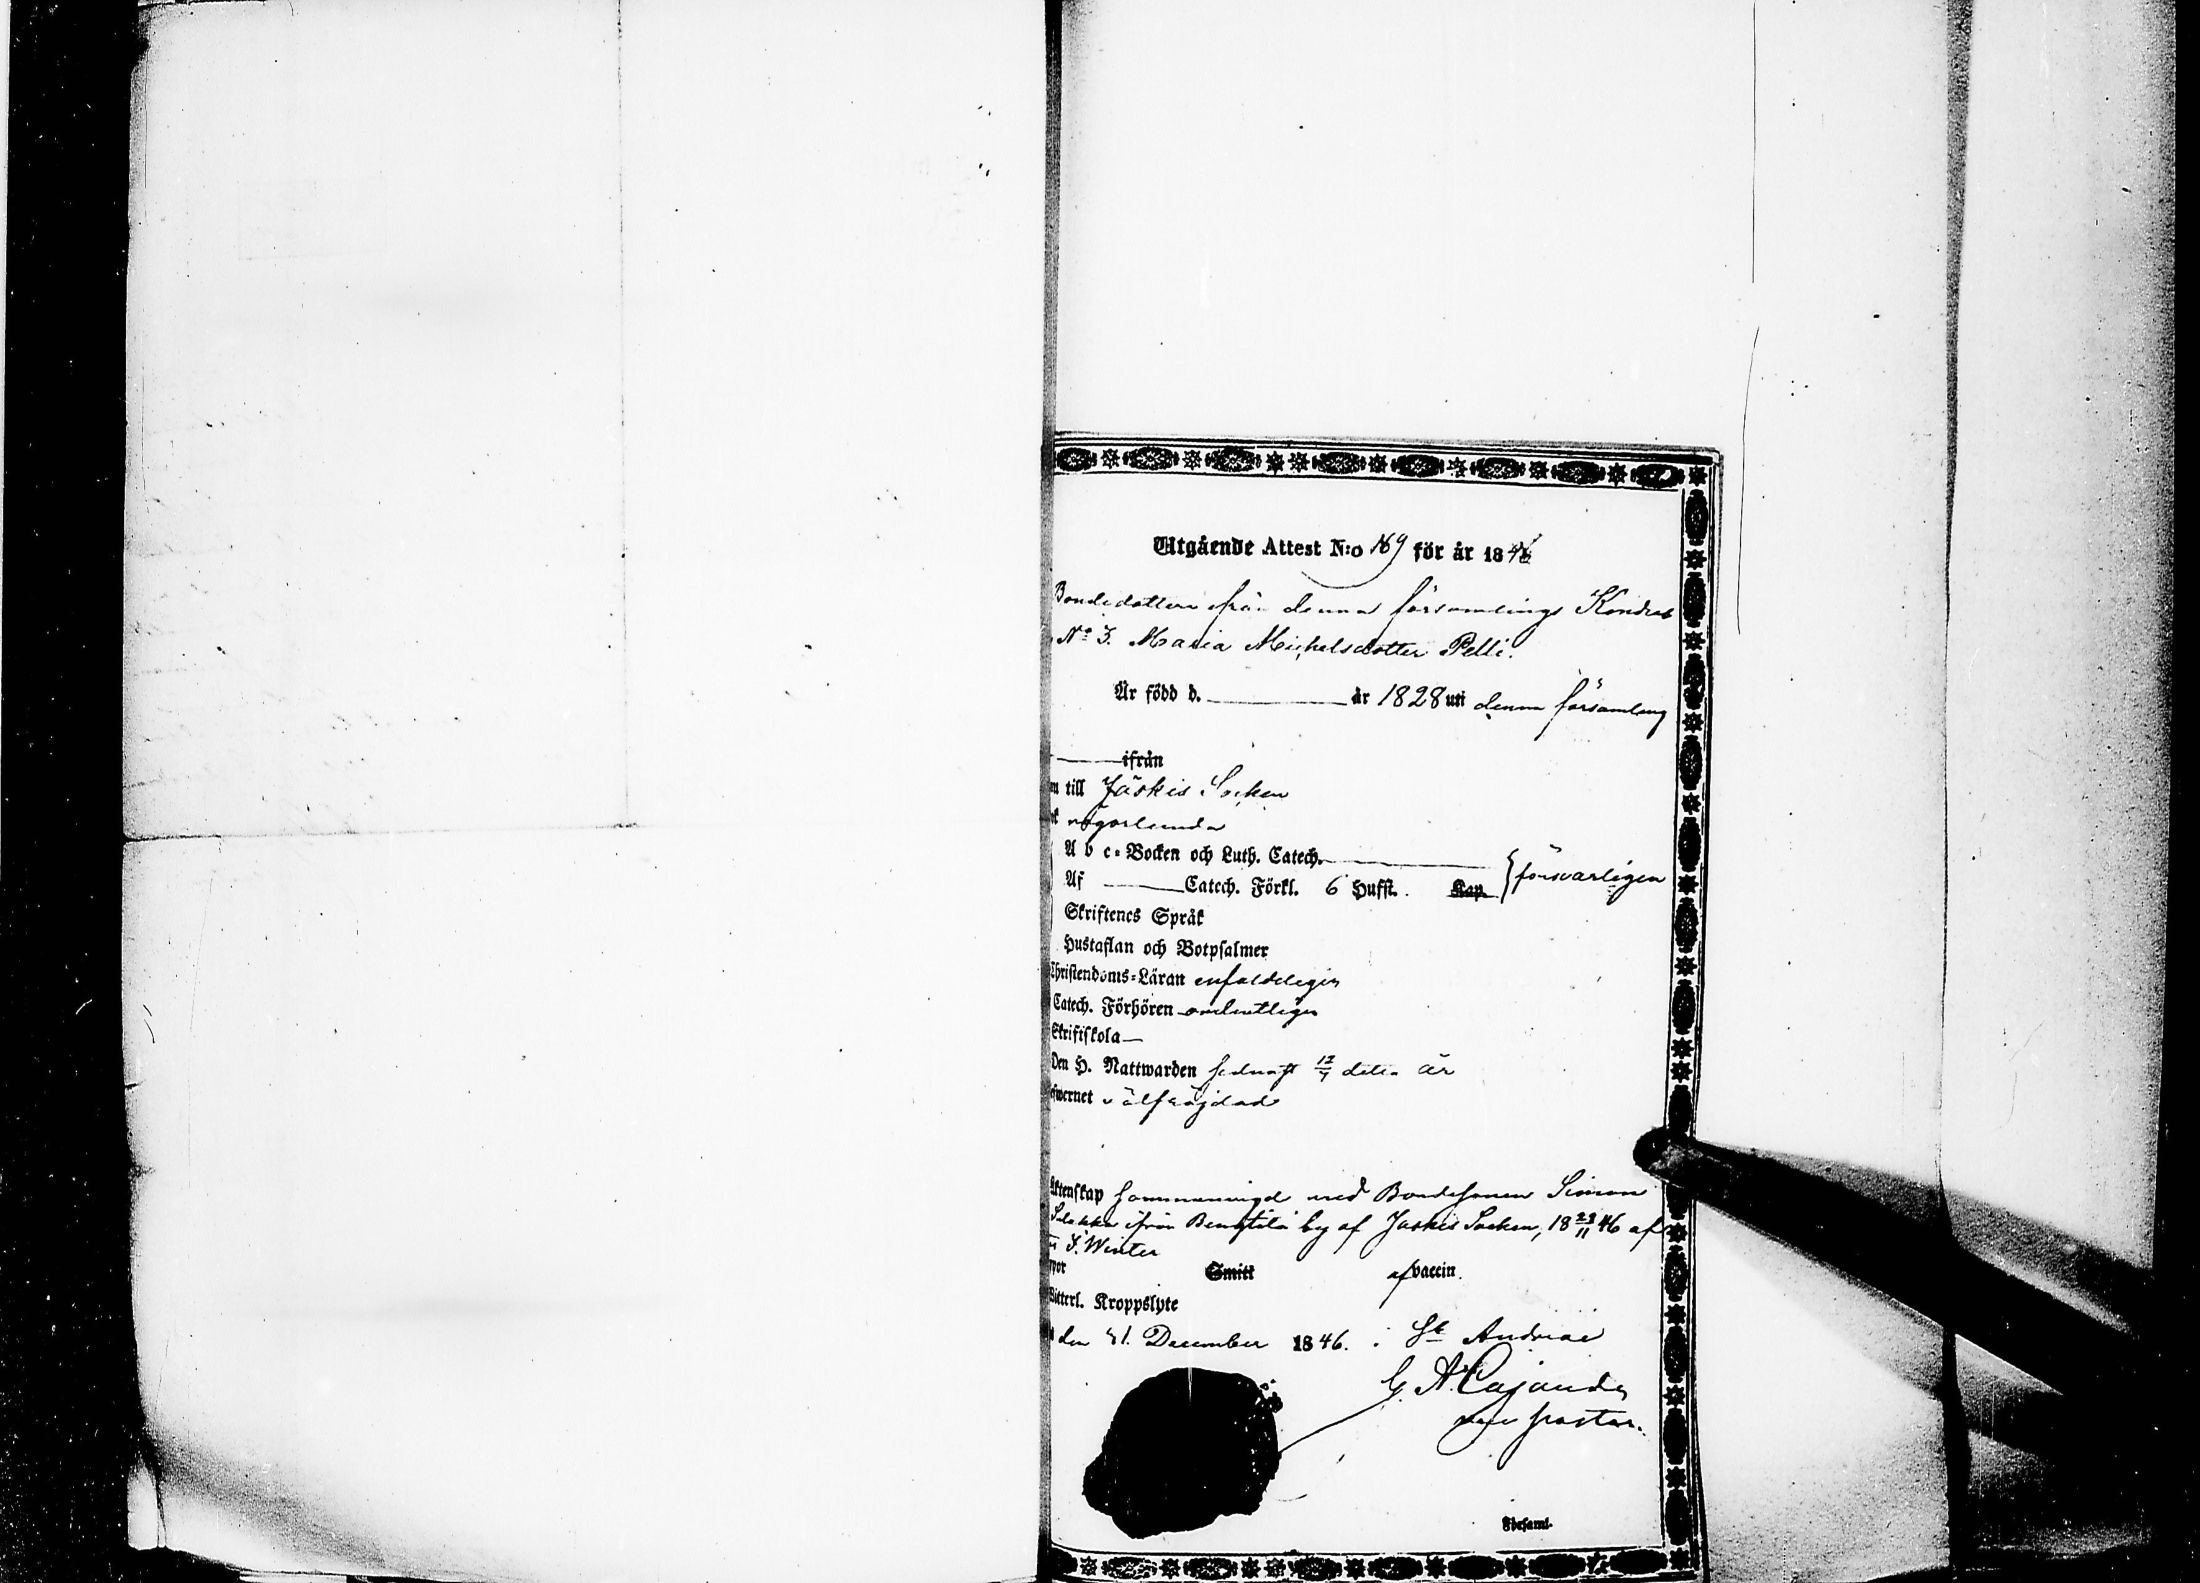 Utgående Attest N:o 169 för år 1846
Bondedottern ifrån denna församlings
N:o 3. Maria Michelsdotter Pelli.
Är född d. år 1828 uti denna församling
ifrån
till Jäskis Socken
någorlunda
A b c-Boken och Luth. Catech.
Af Catech. Förkl. 6 Hufst. Kap. försvarligen
Skriftenes Språk
Hustaflan och Botpsalmer
Christendoms-Läran enfaldeligen
Catech. Förhören ordentligen
Skriftskola
Den H. Nattwarden sednast 12/7 detta år
wälfräjdad
Äktenskap sammanvigd med Bondesonen Simon
ifrån by af Jäskis Socken, 18 29/11 46 af
S. Winter
Smitt af vaccin.
Witterl. Kroppslyte
den 31. December 1846. i S:t Andreae
G. A. Cajander
vice pastor.
Församl.